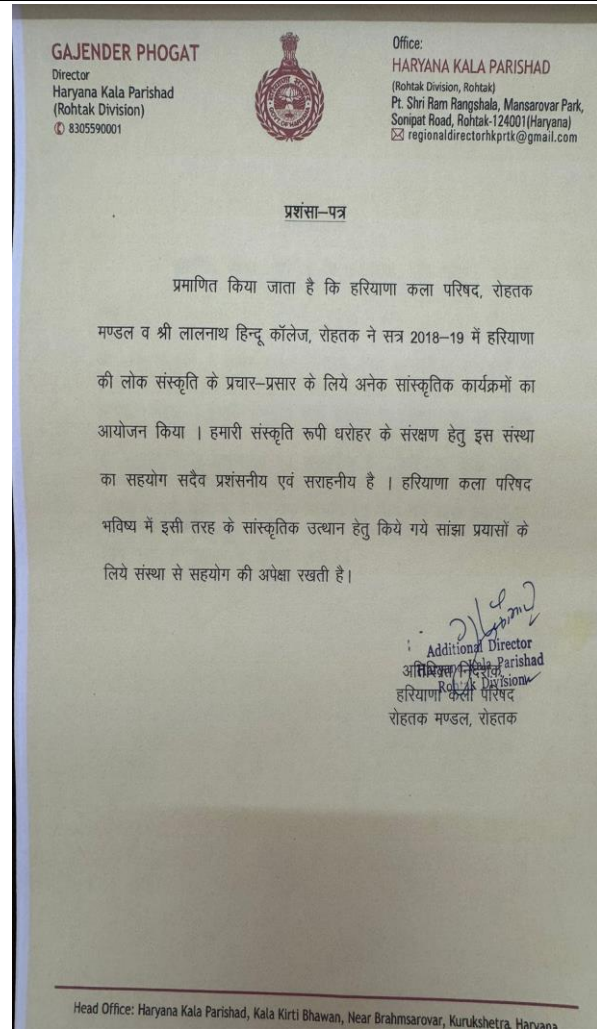 GAJENDER PHOGAT
Director
Haryana Kala Parishad
(Rohtak Division)
8305590001
Office:
HARYANA KALA PARISHAD
(Rohtak Division, Rohtak)
Pt. Shri Ram Rangshala, Mansarovar Park,
Sonipat Road, Rohtak-124001(Haryana)
regionaldirectorhkprtk@gmail.com
प्रशंसा–पत्र
प्रमाणित किया जाता है कि हरियाणा कला परिषद, रोहतक
मण्डल व श्री लालनाथ हिन्दू कॉलेज, रोहतक ने सत्र 2018–19 में हरियाणा
की लोक संस्कृति के प्रचार–प्रसार के लिये अनेक सांस्कृतिक कार्यक्रमों का
आयोजन किया । हमारी संस्कृति रूपी धरोहर के संरक्षण हेतु इस संस्था
का सहयोग सदैव प्रशंसनीय एवं सराहनीय है । हरियाणा कला परिषद
भविष्य में इसी तरह के सांस्कृतिक उत्थान हेतु किये गये सांझा प्रयासों के
लिये संस्था से सहयोग की अपेक्षा रखती है।
Additional Director
Kala Parishad
Division
हरियाणा कला परिषद
रोहतक मण्डल, रोहतक
Head Office: Haryana Kala Parishad, Kala Kirti Bhawan, Near Brahmsarovar, Kurukshetra, Haryana